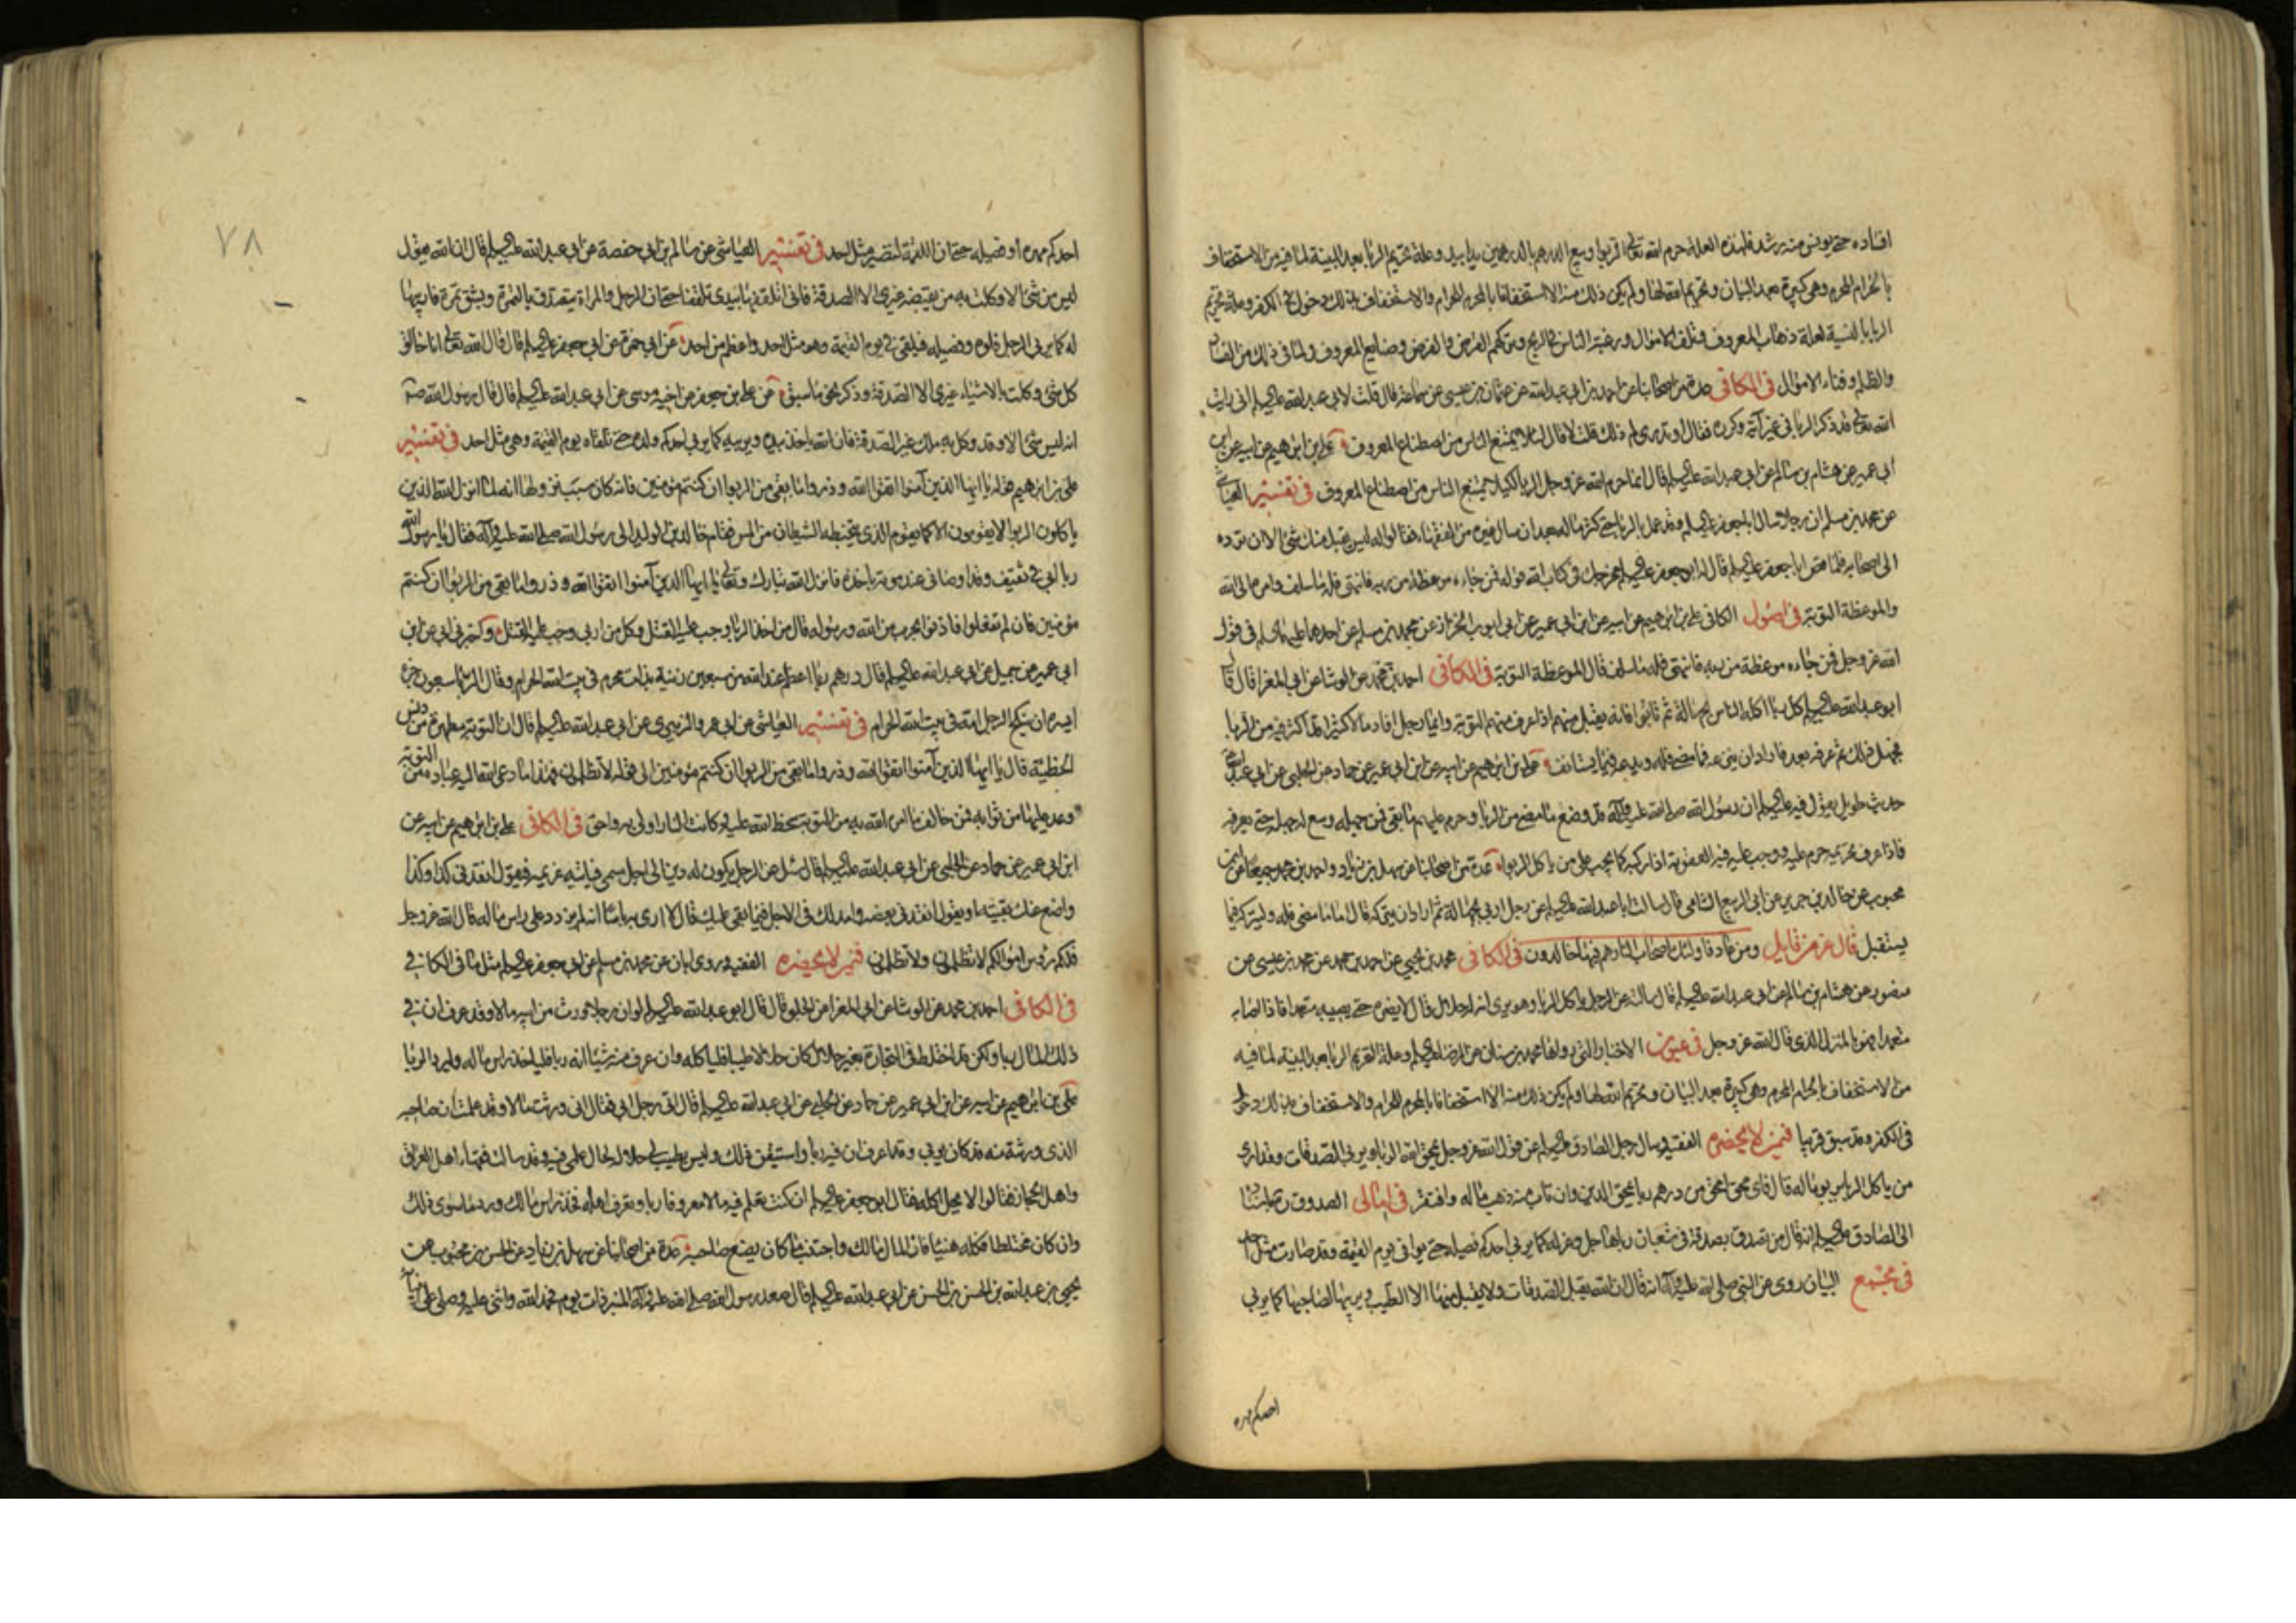 افساده حتى يونس منه رشد فلهذه العلة حرم الله تعالى الربوا وبيع الدرهم بالدرهمين يدا بيد وعلة تحريم الربا بعد البينة لما فيه من الاستخفاف
بالحرام المحرم وهى كبيرة بعد البيان وتحريم الله لها ولم يكن ذلك منه الا استخفافا بالمحرم للحرام والاستخفاف بذلك دخول فى الكفر وعلة تحريم
الربا بالنسية لعلة ذهاب المعروف وتلف الاموال ورغبة الناس فى الربح وتركهم القرض والفرض وصنايع المعروف ولما فى ذلك من الفساد
والظلم وفناء الاموال فى الكافى عدة من اصحابنا عن احمد بن ابى عبد الله عن عثمان بن عيسى عن سماعة قال قلت لابى عبد الله عليه السلم انى رايت
الله تعالى قد ذكر الربا فى غير آية وكرره فقال او تدرى لم ذلك قلت لا قال لئلا يمتنع الناس من اصطناع المعروف على بن ابرهيم عن ابيه عن ابن
ابى عمير عن هشام بن سالم عن ابى عبد الله عليه السلم قال انما حرم الله عز وجل الربا لكيلا يمتنع الناس من اصطناع المعروف فى تفسير العياشى
عن محمد بن مسلم ان رجلا سال ابا جعفر عليه السلم وقد عمل بالربا حتى كثر ماله بعد ان سال غيره من الفقهاء فقالوا له ليس يقبل منك شئ الا ان ترده
الى اصحابه فلما قص ابا جعفر عليه السلم قال له ابو جعفر عليه السلم مخرجك فى كتاب الله قوله فمن جاءه موعظة من ربه فانتهى فله ما سلف وامره الى الله
والموعظة التوبة فى اصول الكافى على بن ابرهيم عن ابيه عن ابن ابى عمير عن ابى ايوب الخزاز عن محمد بن مسلم عن احدهما عليهما السلم فى قول
الله عز وجل فمن جاءه موعظة من ربه فانتهى فله ما سلف قال الموعظة التوبة فى الكافى احمد بن محمد عن الوشا عن ابى المغرا قال قال
ابو عبد الله عليه السلم كل ربا اكله الناس بجهالة ثم تابوا فانه يقبل منهم اذا عرف منهم التوبة وايما رجل افاد مالا كثيرا قد اكثر فيه من الربا
فجهل ذلك ثم عرفه بعد فاراد ان ينزعه فما مضى فله ويدعه فيما يستانف على بن ابرهيم عن ابيه عن ابن ابى عمير عن حماد عن الحلبى عن ابى عبد الله
حديث طويل يقول فيه عليه السلم ان رسول الله صلى الله عليه وآله قد وضع ما مضى من الربا وحرم عليهم ما بقى فمن جهله وسع له جهله حتى يعرفه
فاذا عرف تحريمه حرم عليه ووجب عليه فيه العقوبة اذا ركبه كما يجب على من ياكل الربوا عدة من اصحابنا عن سهل بن زياد واحمد بن محمد جميعا عن ابن
محبوب عن خالد بن جرير عن ابى الربيع الشامى قال سالت ابا عبد الله عليه السلم عن رجل اربى بجهالة ثم اراد ان يتركه قال اما ما مضى فله وليتركه فيما
يستقبل قال عز من قايل ومن عاد فاولئك اصحاب النار هم فيها خالدون فى الكافى محمد بن يحيى عن احمد بن محمد عن محمد بن عيسى عن
منصور عن هشام بن سالم عن ابى عبد الله عليه السلم قال سالته عن الرجل ياكل الربا وهو يرى انه له حلال قال لا يضره حتى يصيبه متعمدا فاذا اصابه
متعمدا فهو بالمنزل الذى قال الله عز وجل فى عيون الاخبار التى رواها محمد بن سنان عن الرضا عليه السلم وعلة تحريم الربا بعد البينة لما فيه
من الاستخفاف بالحرام المحرم وهى كبيرة بعد البيان وتحريم الله لها ولم يكن ذلك منه الا استخفافا بالمحرم للحرام والاستخفاف بذلك دخول
فى الكفر وقد سبق قريبا فيمن لا يحضره الفقيه وسال رجل الصادق عليه السلم عن قول الله عز وجل يمحق الله الربا ويربى الصدقات وقد ارى
من ياكل الربا يربو ماله قال فاى محق امحق من درهم ربا يمحق الدين وان تاب منه ذهب ماله وافتقر فى امالى الصدوق ره باسناده
الى الصادق عليه السلم انه قال من تصدق بصدقة فى شعبان رباها جل وعز له كما يربى احدكم فصيله حتى يوافى يوم القيمة وقد صارت مثل احد
فى مجمع البيان روى عن النبى صلى الله عليه وآله انه قال ان الله يقبل الصدقات ولا يقبل منها الا الطيب ويربيها لصاحبها كما يربى
احدكم مهره
٧٨
احدكم مهره او فصيله حتى ان اللقمة لتصير مثل احد فى تفسير العياشى عن سالم بن ابى حفصة عن ابى عبد الله عليه السلم قال ان الله يقول
ليس من شئ الا وكلت به من يقبضه غيرى الا الصدقة فانى اتلقفها بيدى تلقفا حتى ان الرجل والمراة يتصدق بالتمرة وبشق تمرة فاربيها
له كما يربى الرجل فلوه وفصيله فيلقى فى يوم القيمة وهو مثل احد واعظم من احد عن ابى حمزة عن ابى جعفر عليه السلم قال قال الله تعالى انا خالق
كل شئ وكلت بالاشياء غيرى الا الصدقة وذكر نحو ما سبق عن على بن جعفر عن اخيه موسى عن ابى عبد الله عليه السلم قال قال رسول الله ص
انه ليس شئ الا وقد وكل به ملك غير الصدقة فان الله ياخذه بيده ويربيه كما يربى احدكم ولده حتى تلقاه يوم القيمة وهى مثل احد فى تفسير
على بن ابرهيم قوله يا ايها الذين آمنوا اتقوا الله وذروا ما بقى من الربوا ان كنتم مؤمنين فانه كان سبب نزولها انه لما انزل الله الذين
ياكلون الربوا لا يقومون الا كما يقوم الذى يتخبطه الشيطان من المس فقام خالد بن الوليد الى رسول الله صلى الله عليه وآله فقال يا رسول الله
ربا ابى فى ثقيف وقد اوصانى عند موته باخذه فانزل الله تبارك وتعالى يا ايها الذين آمنوا اتقوا الله وذروا ما بقى من الربوا ان كنتم
مؤمنين فان لم تفعلوا فاذنوا بحرب من الله ورسوله قال من اخذ الربا وجب عليه القتل وكل من اربى وجب عليه القتل واخبرنى ابى عن ابن
ابى عمير عن جميل عن ابى عبد الله عليه السلم قال درهم ربا اعظم عند الله من سبعين زنية بذات محرم فى بيت الله الحرام وقال الربا سبعون جزء
ايسره ان ينكح الرجل امه فى بيت الله الحرام فى تفسير العياشى عن ابى عمرو الزبيرى عن ابى عبد الله عليه السلم قال ان التوبة مطهرة من دنس
الخطيئة قال يا ايها الذين آمنوا اتقوا الله وذروا ما بقى من الربوا ان كنتم مؤمنين الى قوله لا تظلمون فهذا ما دعى الله اليه عباده من التوبة
ووعد عليها من ثوابه فمن خالف ما امر الله به من التوبة سخط الله عليه وكانت النار اولى به واحق فى الكافى على بن ابرهيم عن ابيه عن
ابن ابى عمير عن حماد عن الحلبى عن ابى عبد الله عليه السلم قال سئل عن الرجل يكون له دين الى اجل مسمى فياتيه غريمه فيقول انقدنى كذا وكذا
واضع عنك بقيته او يقول انقدنى بعضه وامد لك فى الاجل فيما بقى عليك قال لا ارى به باسا انه لم يزدد على راس ماله قال الله عز وجل
فلكم رؤس اموالكم لا تظلمون ولا تظلمون فيمن لا يحضره الفقيه وروى ابان عن محمد بن مسلم عن ابى جعفر عليه السلم مثل ما فى الكافى
فى الكافى احمد بن محمد عن الوشا عن ابى المغرا عن الحلبى قال قال ابو عبد الله عليه السلم لو ان رجلا ورث من ابيه مالا وقد عرف ان فى
ذلك المال ربا ولكن قد اختلط فى التجارة بغير حلال كان حلالا طيبا فلياكله وان عرف منه شيئا انه ربا فلياخذ راس ماله وليرد الربا
على بن ابرهيم عن ابيه عن ابن ابى عمير عن حماد عن الحلبى عن ابى عبد الله عليه السلم قال اتى رجل ابى فقال انى ورثت مالا وقد علمت ان صاحبه
الذى ورثته منه قد كان يربى وقد اعرف ان فيه ربا واستيقن ذلك وليس يطيب لى حلاله لحال علمى فيه وقد سالت فقهاء اهل العراق
واهل الحجاز فقالوا لا يحل اكله فقال ابو جعفر عليه السلم ان كنت تعلم فيه مالا معروفا ربا وتعرف اهله فخذ راس مالك ورد ما سوى ذلك
وان كان مختلطا فكله هنيئا فان المال مالك واجتنب ما كان يصنع صاحبه عدة من اصحابنا عن سهل بن زياد عن الحسن بن محبوب عن
يحيى بن عبد الله بن الحسن بن الحسن عن ابى عبد الله عليه السلم قال صعد رسول الله صلى الله عليه وآله المنبر ذات يوم فحمد الله واثنى عليه وصلى على انبيائه